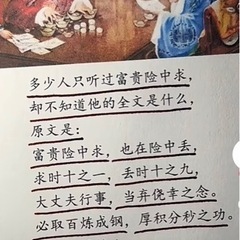 多少人只听过富贵险中求，
却不知道他的全文是什么，
原文是：
富贵险中求，也在险中丢，
求时十之一，丢时十之九，
大丈夫行事，当弃侥幸之念。
必取百炼成钢，厚积分秒之功。